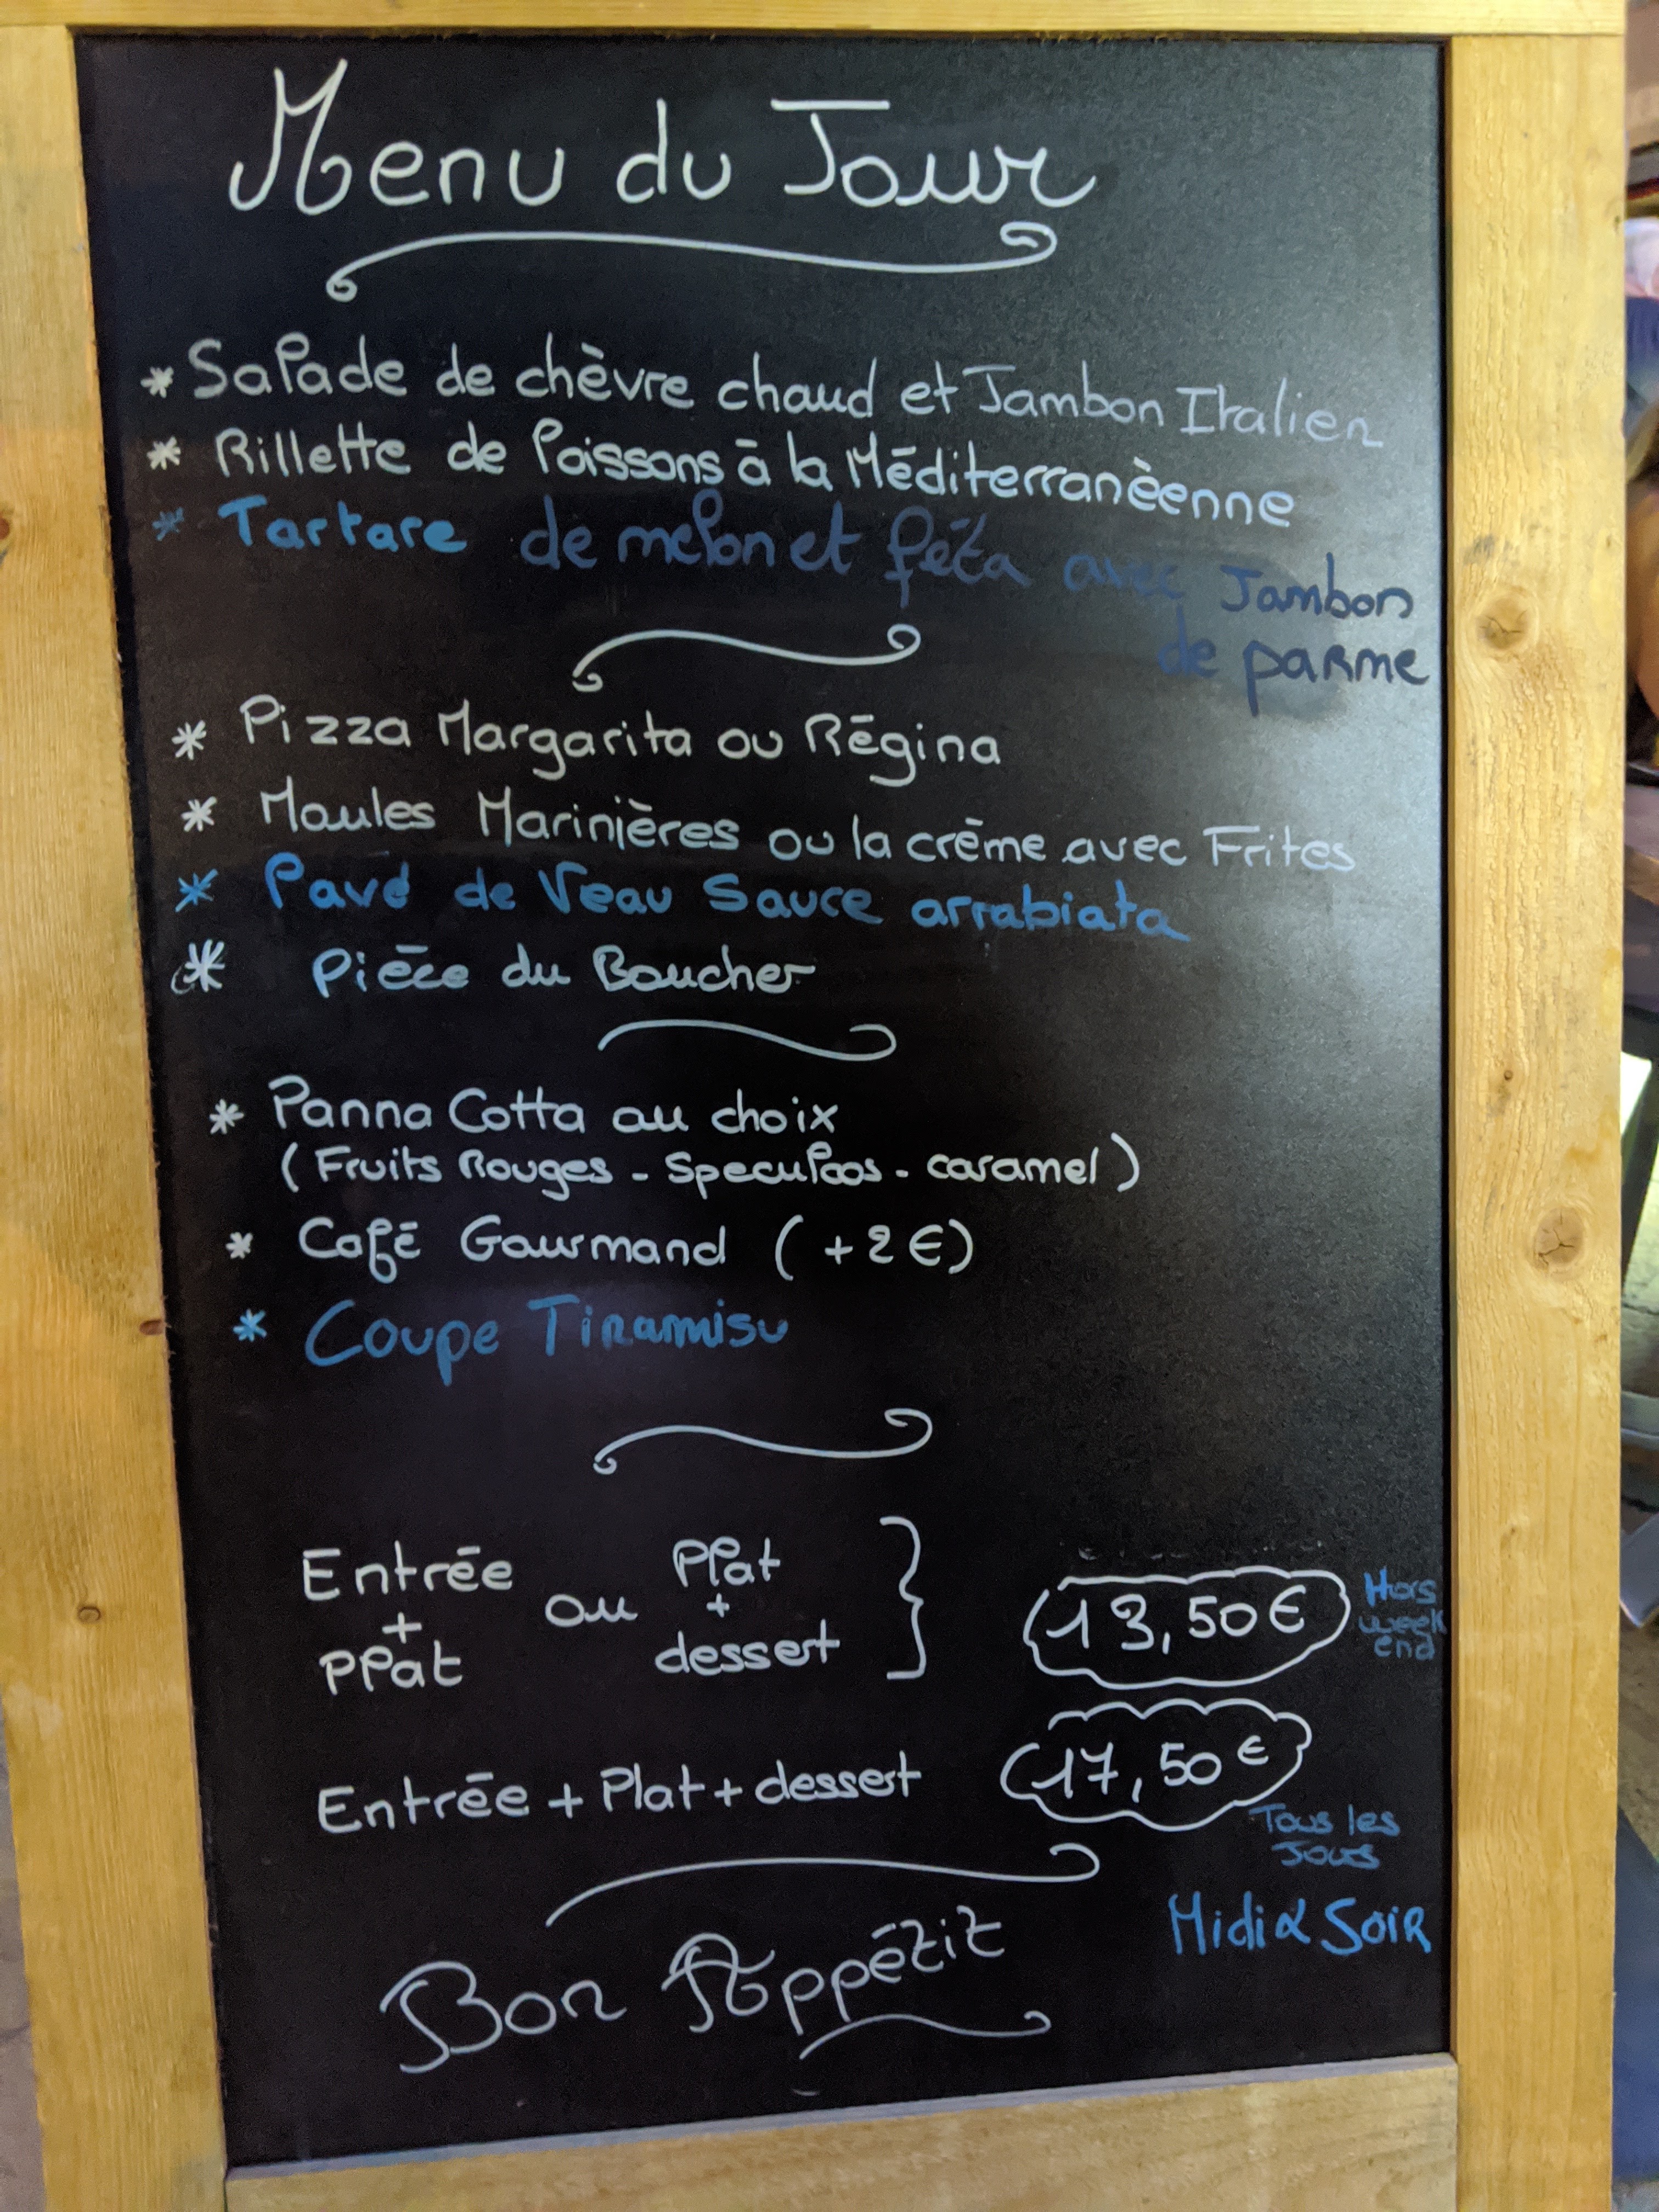 Menu du Jour
* Salade de chèvre chaud et Jambon Italien
* Rillette de Poissons à la Méditerranèenne
* Tartare de melon et féta avec Jambon
de parme
* Pizza Margarita ou Régina
* Moules Marinières ou la crème avec Frites
* Pavé de Veau Sauce arrabiata
* Pièce du Boucher
* Panna Cotta au choix
(Fruits Rouges - Speculoos - caramel)
* Café Gourmand (+2€)
* Coupe Tiramisu
Entrée + Plat ou Plat + dessert } 13,50€ Hors week end
Entrée + Plat + dessert 17,50€
Tous les Jours
Midi & Soir
Bon Appétit